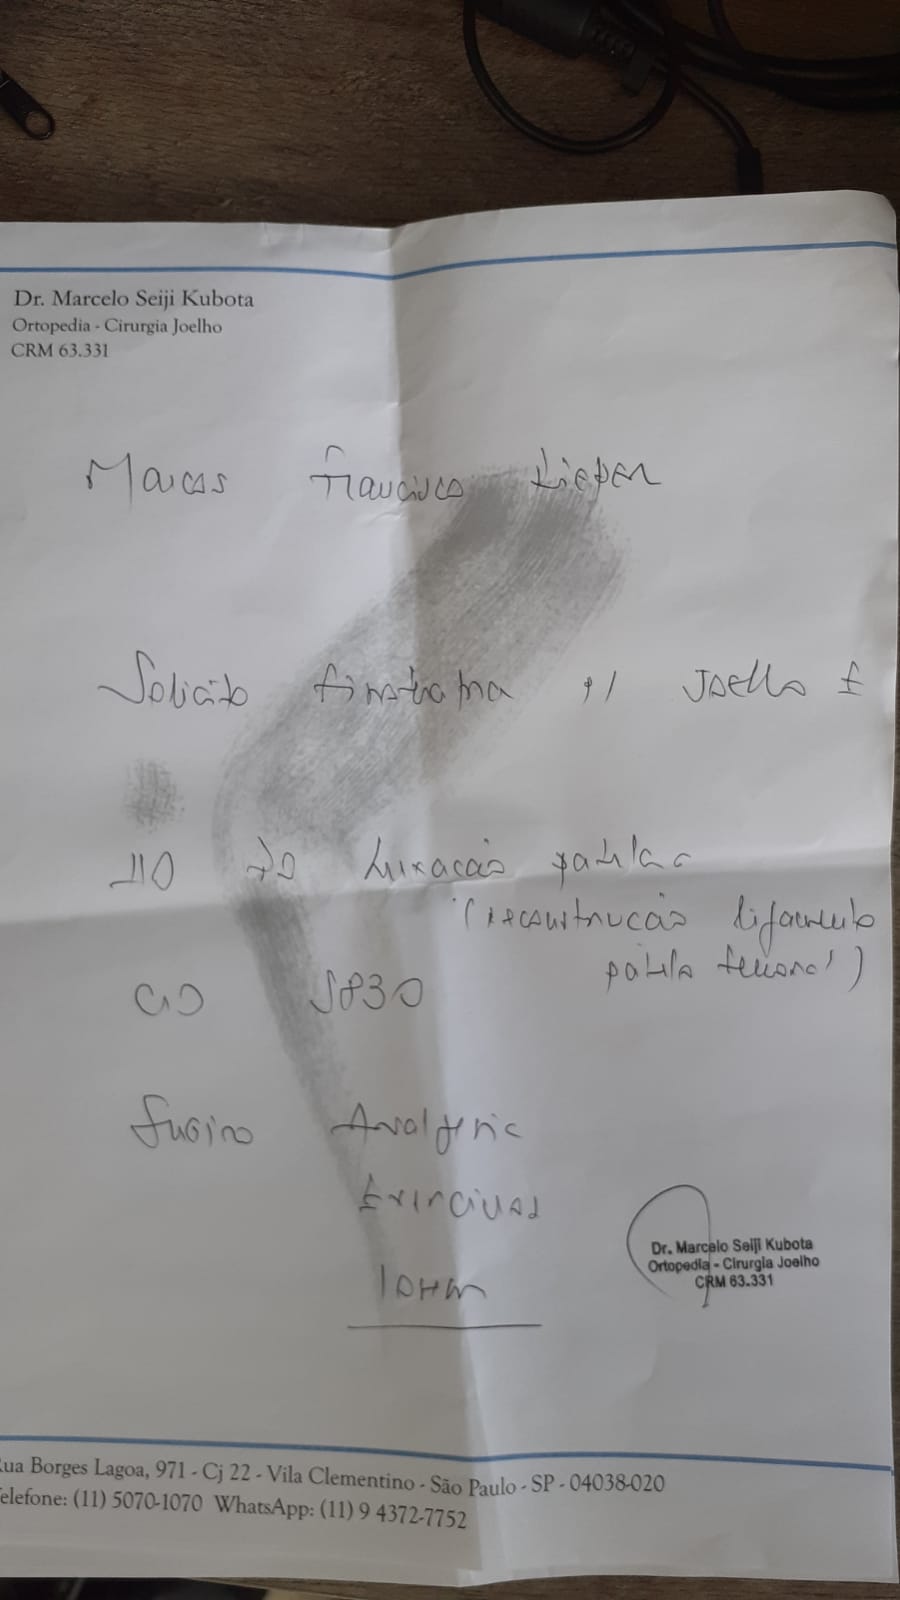 Dr. Marcelo Seiji Kubota
Ortopedia - Cirurgia Joelho
CRM 63.331
Francisco
Solicito p/ Joelho E
Luxação patela
(reconstrução ligamento
patelo femoral)
CID S830
Analgesia
Exercicios
Dr. Marcelo Seiji Kubota
Ortopedia - Cirurgia Joelho
CRM 63.331
Rua Borges Lagoa, 971 - Cj 22 - Vila Clementino - São Paulo - SP - 04038-020
Telefone: (11) 5070-1070 WhatsApp: (11) 9 4372-7752